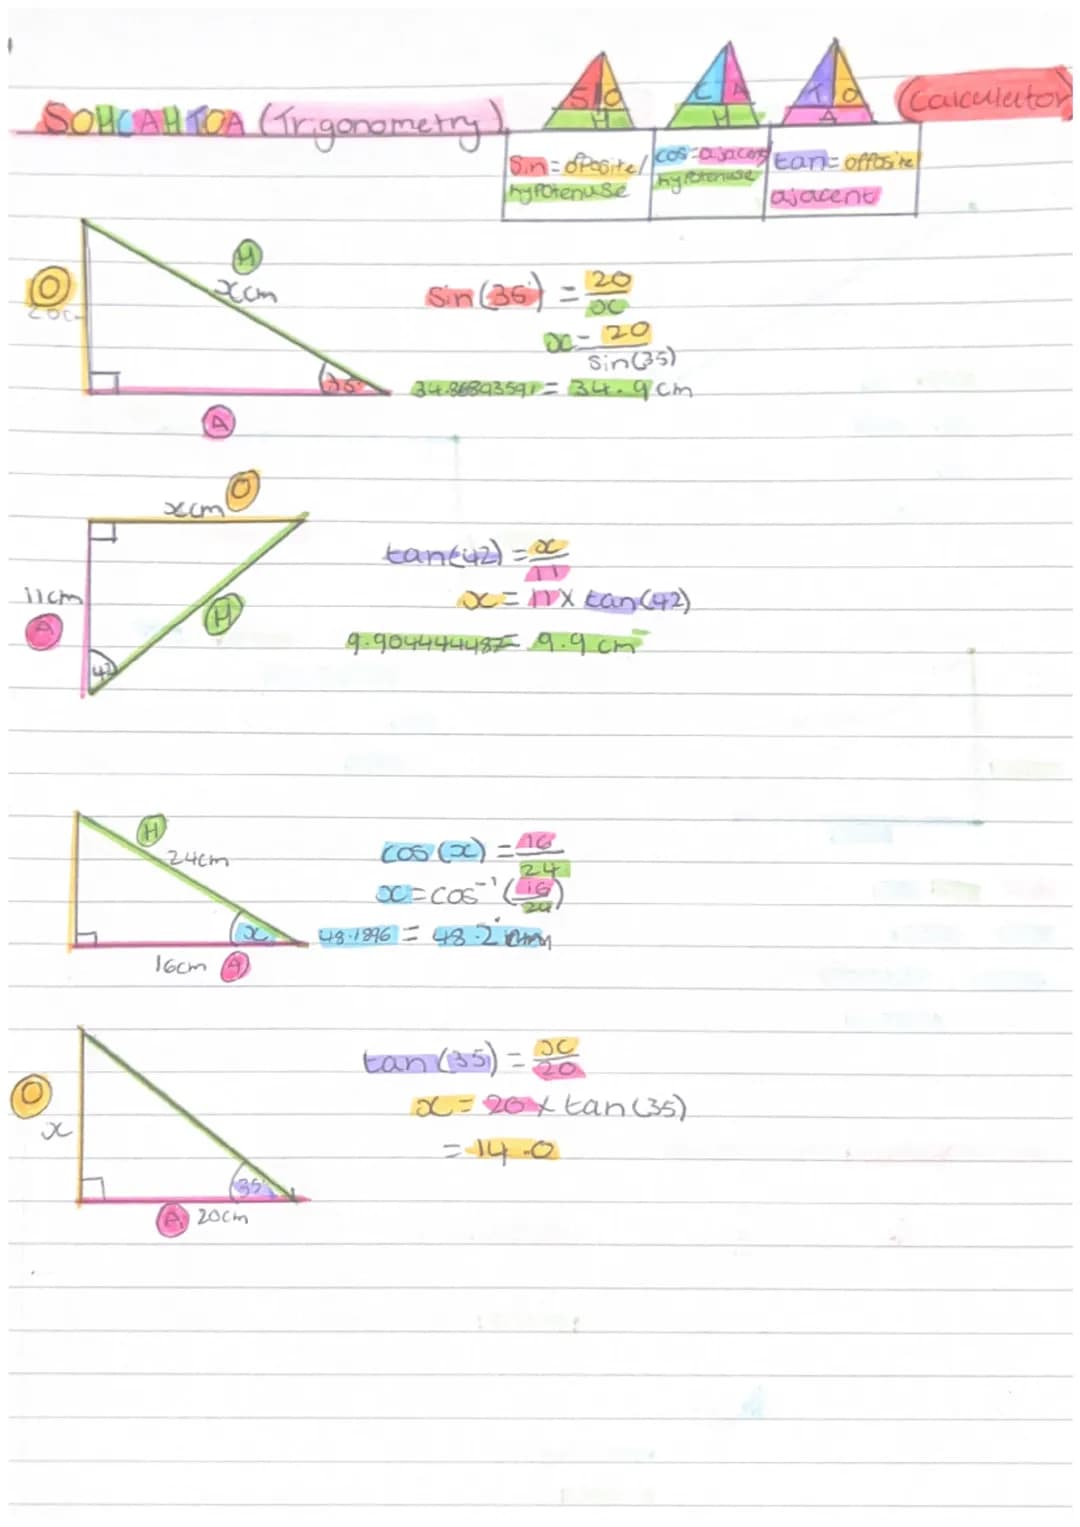 SOHCAHTOA (Trigonometry)
S O H
C A H
T O A
(Calculator)
Sin = opposite/
hypotenuse
cos = ajacent
hypotenuse
tan = opposite
ajacent
H
xcm
O
20c
35°
A
sin (35) = 20
x
x = 20
sin(35)
34.86893591 = 34.9cm
xcm O
11cm
A
H
42
tan(42) = x
11
x = 11 x tan(42)
9.904444487 = 9.9 cm
H
24cm
x
16cm A
cos (x) = 16
24
x = cos⁻¹ (16
24)
48.1896 = 48.2°
O
x
35
A 20cm
tan (35) = x
20
x = 20 x tan (35)
= 14.0